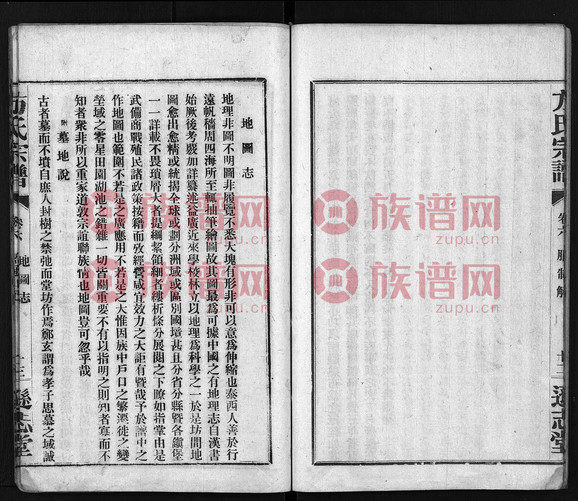 方氏宗譜
卷六
服制解
十三
遜志堂
地圖志
地理非圖不明圖非履覽不悉大塊有形非可以意爲伸縮也泰西人善於行
遠帆檣周四海所至輒抽筆繪圖故其圖最爲可據中國之有地理志自漢書
始厥後考覈加詳纂述益廣近來學校林立以地理爲科學之一於是坊間地
圖愈出愈精或統揭全球或劃分洲域或區別國壤甚且分省分縣暨各鎭堡
一一詳載不畏瑣屑大者提綱絜領細者縷析條分展閱之下瞭如指掌由是
武備商戰殖民諸政策按籍而攷經營咸宜效力之大詎有暨哉予於譜中之
作地圖也範圍不若是之廣應用不若是之大惟因族中戶口之繁遷徙之變
塋域之零星田園湖池之錯雜一切皆關重要不有以指明之則知者寡而不
知者衆非所以重家道敦宗誼聯族情也地圖豈可忽乎哉
附 墓地說
古者墓而不墳自庶人封樹之禁弛而堂坊作焉鄭玄謂爲孝子思慕之域誠
方氏宗譜
卷六
地圖志
十三
遜志堂
族谱网
www.zupu.cn
族谱网
www.zupu.cn
族谱网
www.zupu.cn
族谱网
www.zupu.cn